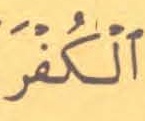 ٱلْكُفْرَ